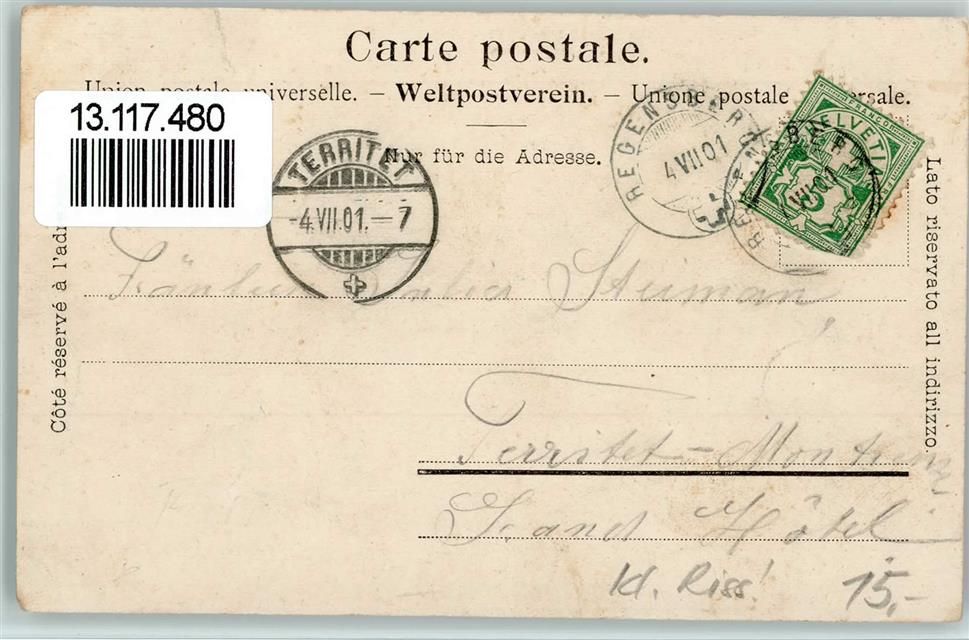 Carte postale.
Union postale universelle. – Weltpostverein. – Unione postale universale.
13.117.480
Nur für die Adresse.
TERRITET
-4.VII.01.–7
REGENSBERG
4 VII 01
REGENSBERG
VII 01
FRANCO
HELVETIA
Côté réservé à l'adr
Lato riservato all indirizzo.
Fräulein Steiman
Territet – Montreux
Grand Hôtel
kl. Riss!
15,-